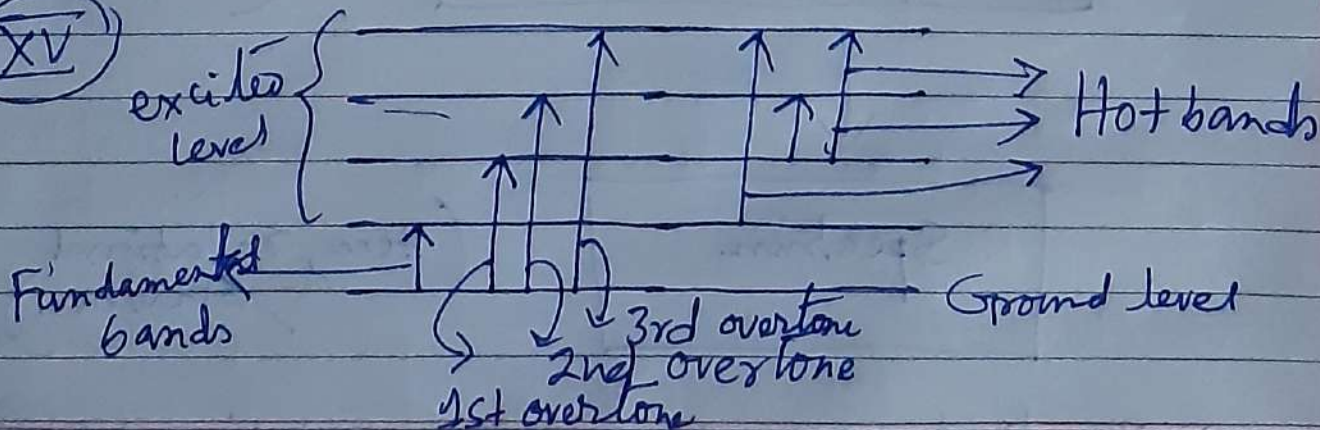 XV
excited
level
Hot bands
Fundamental
bands
Ground level
3rd overtone
2nd overtone
1st overtone